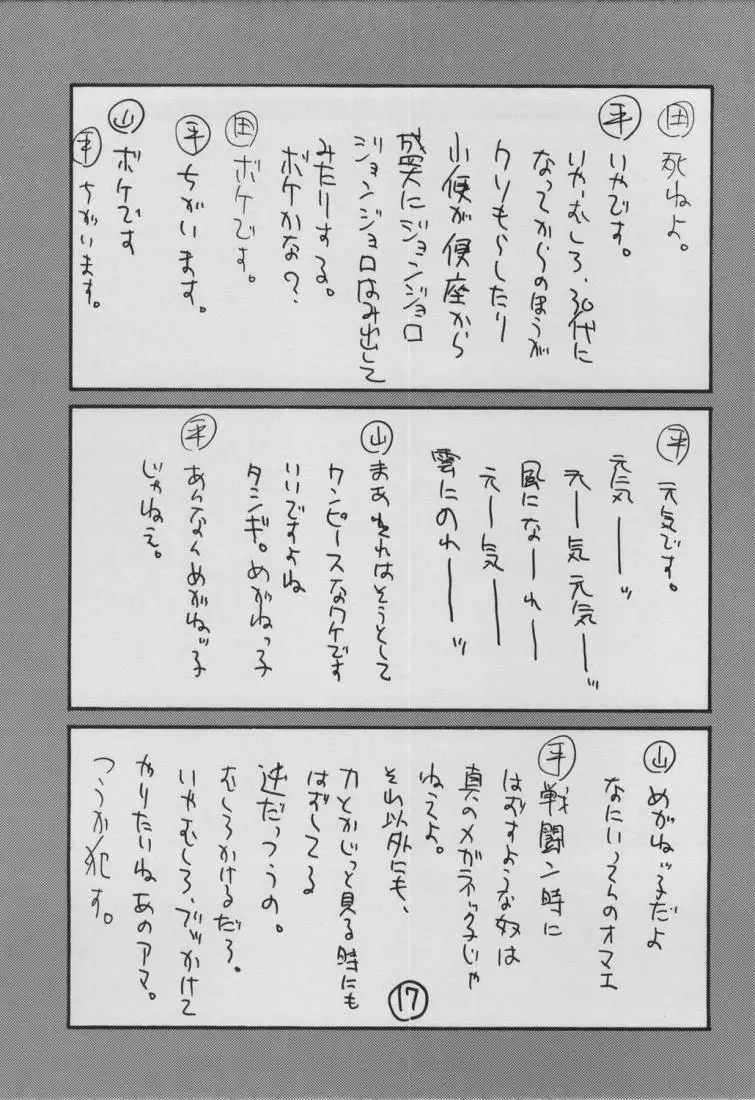 田 死ねよ。
平 いやです。
いや、むしろ、30代に
なってからのほうが
クソもらしたり
小便が便座から
盛大にジョンジョロ
ジョンジョロはみ出して
みたりする。
ボケかな?
田 ボケです。
平 ちがいます。
山 ボケです
平 ちがいます。
平 元気です。
元気ーーッ
元ー気元気ーーッ
風になーれー
元ー気ーー
雲にのれーーッ
山 まあそれはそうとして
ワンピースなワケです
いいですよね
タシギ。めがねっ子
平 あんなんめがねッ子
じゃねえ。
山 めがねッ子だよ
なにいってんのオマエ
平 戦闘ン時に
はずすような奴は
真のメガネッ子じゃ
ねえよ。
それ以外にも、
力とかじっと見る時にも
はずしてる
逆だっつうの。
むしろかけるだろ。
いやむしろ、ブッかけて
やりたいね あのアマ。
つうか犯す。
17